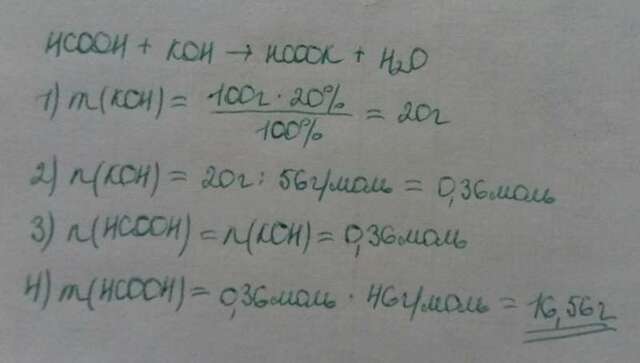 HCOOH + KOH → HCOOK + H₂O
1) m(KOH) = 100г · 20% / 100% = 20г
2) n(KOH) = 20г : 56г/моль = 0,36моль
3) n(HCOOH) = n(KOH) = 0,36моль
4) m(HCOOH) = 0,36моль · 46г/моль = 16,56г